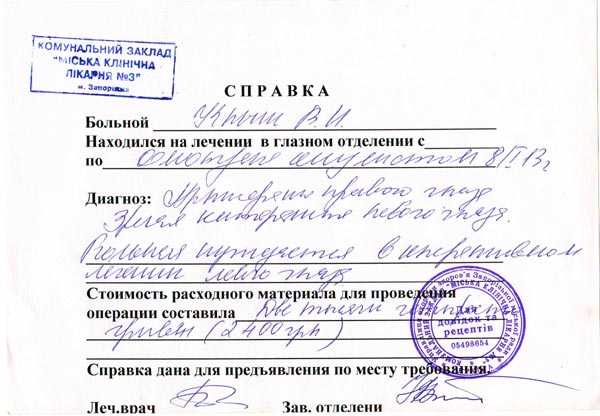 КОМУНАЛЬНИЙ ЗАКЛАД
"МІСЬКА КЛІНІЧНА
ЛІКАРНЯ №3"
м. Запоріжжя
СПРАВКА
Больной В.И.
Находился на лечении в глазном отделении с
по Осмотрена окулистом 8/I 13г
Диагноз: Артифакия правого глаза
Зрелая катаракта левого глаза.
Больная нуждается в оперативном
лечении левого глаза
Стоимость расходного материала для проведения
операции составила Две тысячи четыреста
гривен (2400 грн)
Для
довідок та
рецептів
05498654
Справка дана для предъявления по месту требования.
Леч.врач Зав. отделени